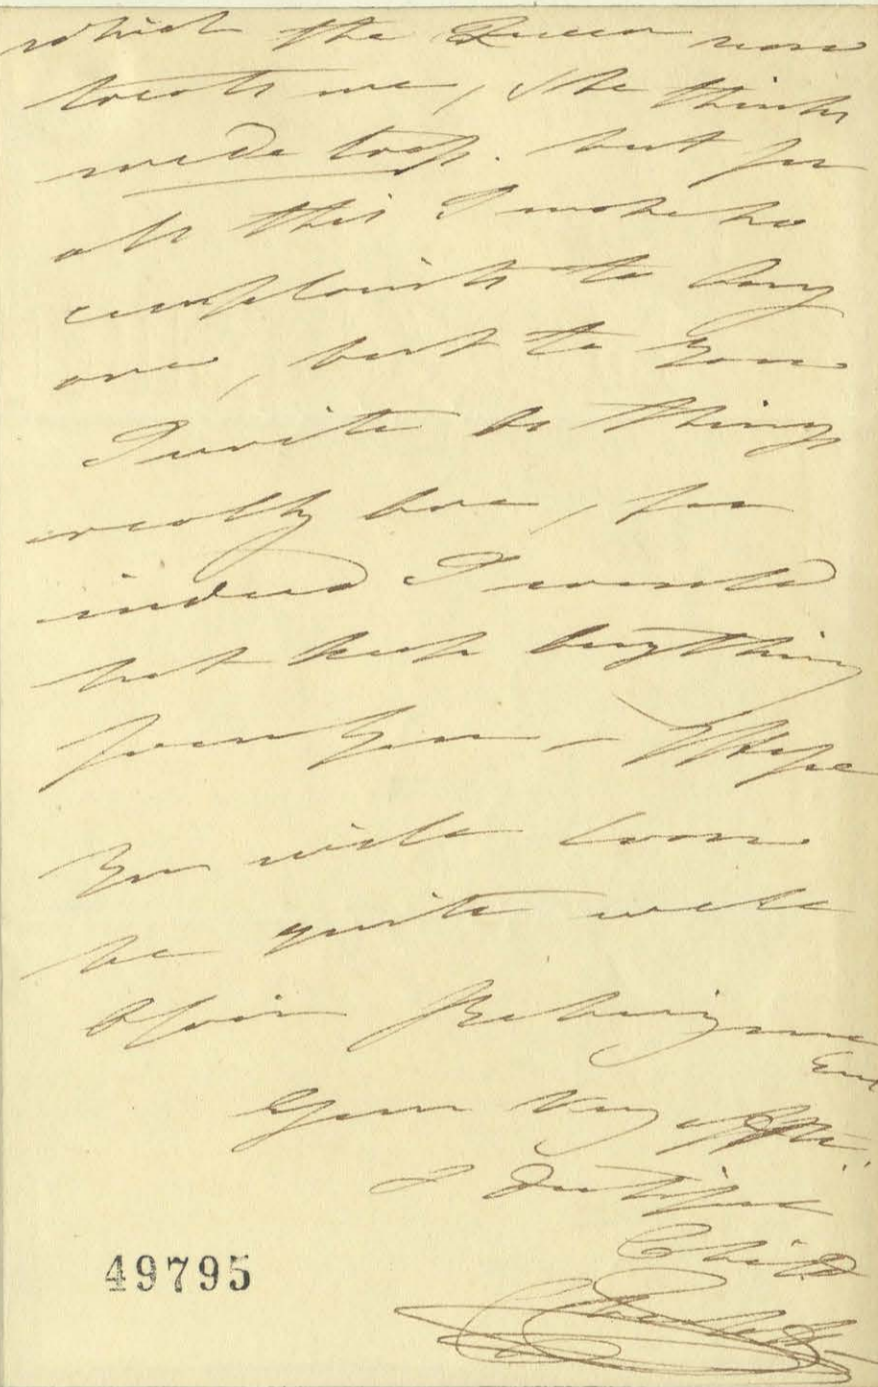 which the Queen now
treats me, she thinks
me de trop. but for
all this I make no
complaints to any
one, but to you
I write as things
really are, for
indeed I would
not keep anything
from you – I hope
you will soon
be quite well
again Believing me
Ever
Your very affte.
& dutiful
Child
Charlotte
49795